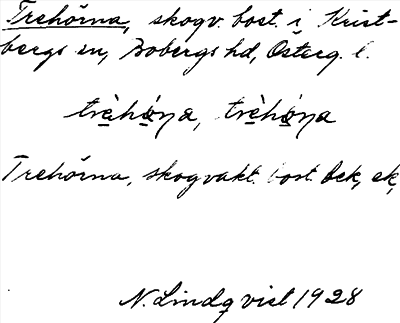 Trehörna, skogv. bost. i Krist-
bergs sn, Bobergs hd, Österg. l.
trèhö̀ṇa, trèhö̀ṇa
Trehörna, skogvakt. bost. Eek, ek,
N. Lindqvist 1928